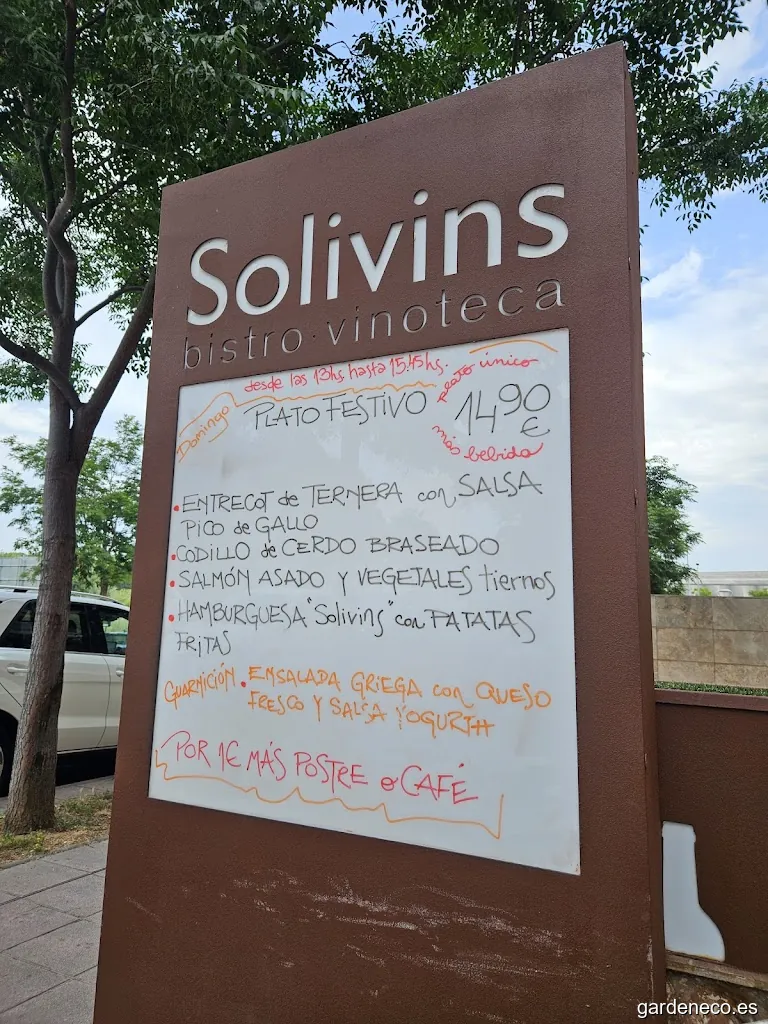 Solivins
bistro·vinoteca
desde las 13hs. hasta 15.45hs.
Domingo
PLATO FESTIVO
plato único
14,90 €
más bebida
• ENTRECOT de TERNERA con SALSA
PICO de GALLO
• CODILLO de CERDO BRASEADO
• SALMÓN ASADO Y VEGETALES tiernos
• HAMBURGUESA "Solivins" con PATATAS
FRITAS
GUARNICIÓN • ENSALADA GRIEGA con QUESO
FRESCO Y SALSA YOGURTH
POR 1€ MÁS POSTRE o CAFÉ
gardeneco.es